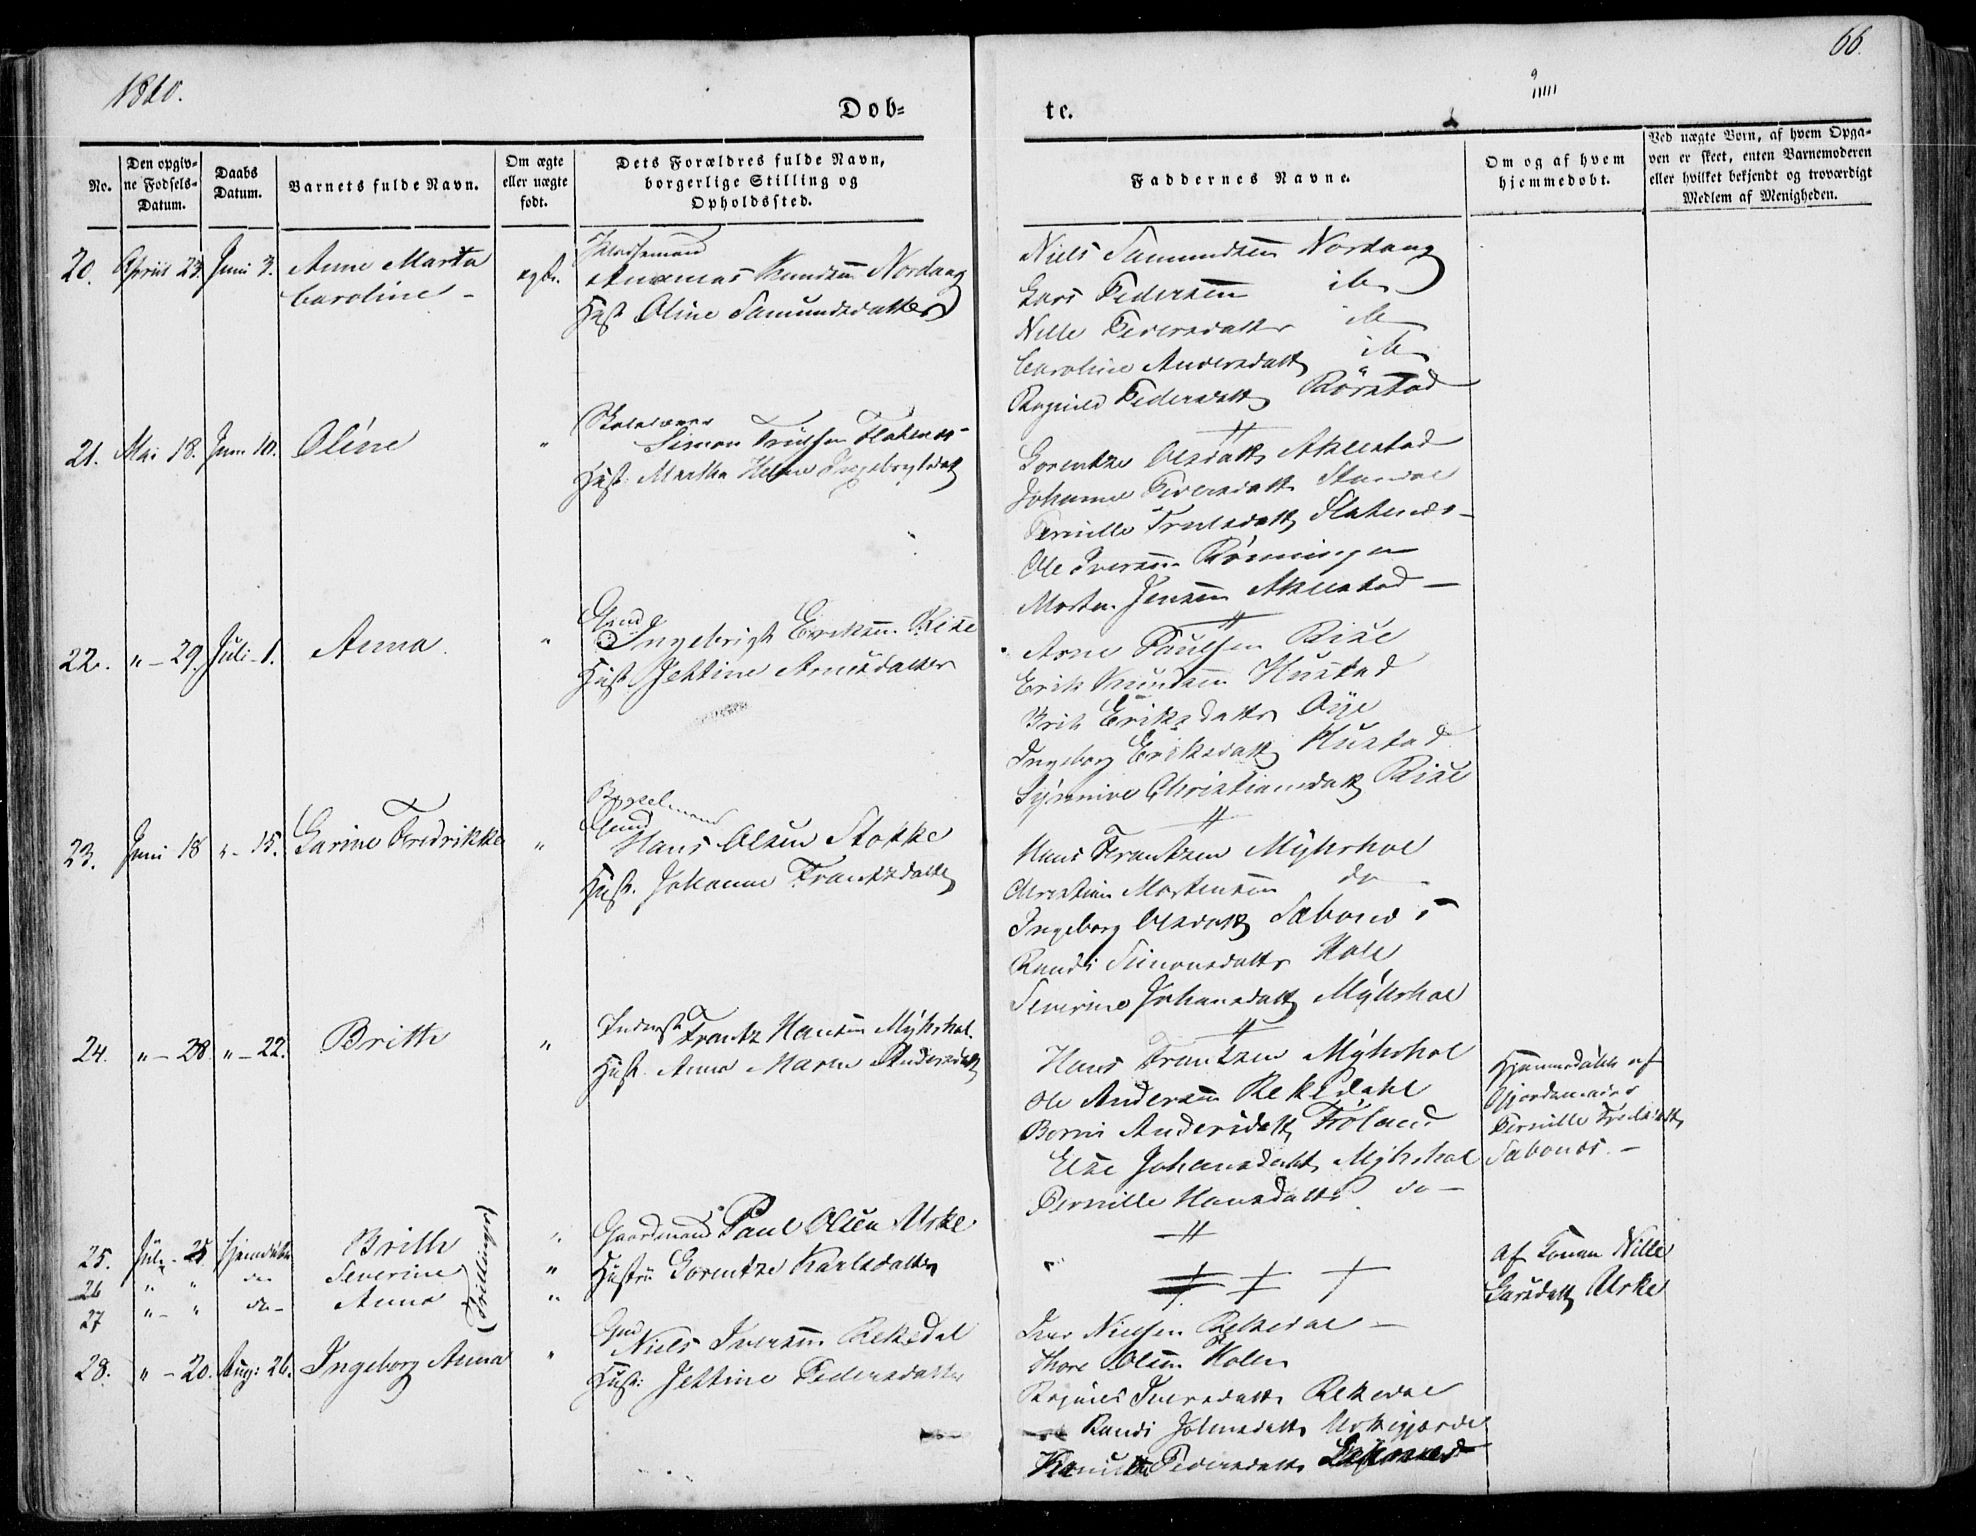 1860.
66.
Dob-
te.
No.
Den opgiv-
ne Fødsels-
Datum.
Daabs
Datum.
Barnets fulde Navn.
Om ægte
eller uægte
født.
Dets Forældres fulde Navn,
borgerlige Stilling og
Opholdssted.
Faddernes Navne.
Om og af hvem
hjemmedøbt.
Ved uægte Børn, af hvem Opga-
ven er skeet, enten Barnemoderen
eller hvilket bekjendt og troværdigt
Medlem af Menigheden.
20. April 23. Juni 3. Anne Marta
Caroline
ægte.
Knudsen Nordang
Hust Oline Samundsdatter
Niels Samundsen Nordang
Lars Pedersen ib
Nille Pedersdatter ib
Caroline Andersdatt ib
Pedersdatt Rörstad
21. Mai 18. Juni 10. Oline "
Simon Truelsen
Hust. Martha Ingebrigtsdatt
Lorentze Olsdatt Aklestad
Johanne Pedersdatt Standal
Pernille Truelsdatt
Ole Iversen Rönningen
Morten Jensen Aklestad
22. " - 29. Juli 1. Anna "
Gmd
Ingebrigt Eriksen Rise
Hust Jettine Arnesdatter
Arne Paulsen Rise
Erik Knudsen Hustad
Brit Eriksdatter Öye
Ingeborg Eriksdatt Hustad
Synnive Christiansdatt Rise
23. Juni 18 " - 15. Larine Fredrikke "
Bygselmand
Hans Olsen Stokke
Hust. Johanne Frantzdatter
Hans Frantzen Myhrhol
Christian Mortensen do
Ingeborg Olsdatt Sæbonæs
Randi Simonsdatter Hole
Severine Johansdatt Myhrhol
24. " - 28. " - 22. Brith "
Inderst Frantz Hansen Myhrhol
Hust. Anne Maren Andersdatt
Hans Frantzen Myhrhol
Ole Andersen Rekkedahl
Andersdatt
Else Johansdatt Myhrhol
Pernille Hansdatter do
Hjemmedöbt af
Gjordemoder
Pernille
Sæbonæs. -
25. Juli - 25 Hjemdöbt Brith "
26 " " do Severine "
27 " - " do - Anna "
(Trillinger)
Gaardmand Paul Olsen Urke
Hustru Lorentze Karlsdatter
af Konen Nille
Larsdatt Urke
28. " - 20. Aug: 26. Ingeborg Anna "
Gmd
Niels Iversen Rekkedal
Hust: Jettine Pedersdatter
Iver Nielsen Rekkedal -
Thore Olsen Holen
Iversdatt Rekkedal
Randi Johnsdatter
Pedersdatter